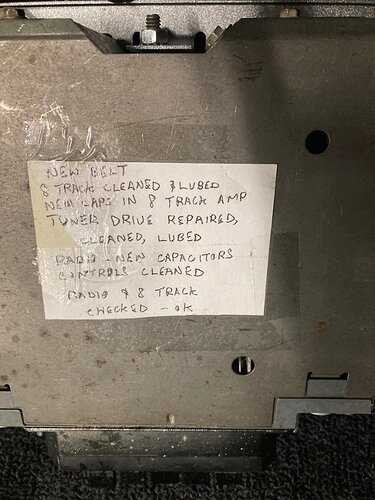 NEW BELT
8 TRACK CLEANED & LUBED
NEW CAPS IN 8 TRACK AMP
TUNER DRIVE REPAIRED,
CLEANED, LUBED
RADIO - NEW CAPACITORS
CONTROLS CLEANED
RADIO & 8 TRACK
CHECKED - OK